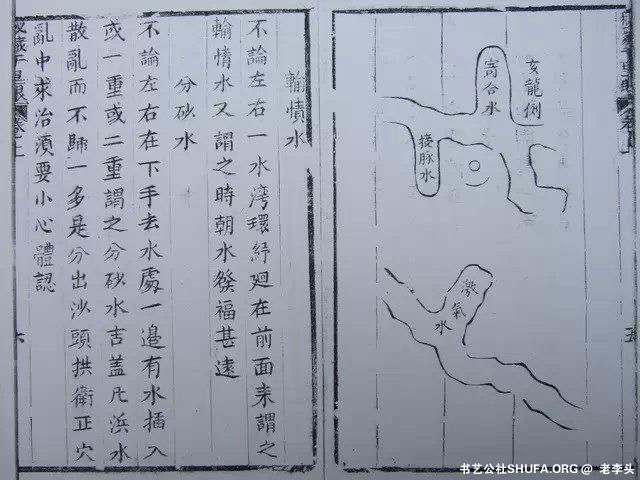 亥龍倒
寄合水
接脉水
激氣水
五
輸情水
不論左右一水湾環紆廻在前面來謂之
輸情水又謂之時朝水發福甚遠
分砂水
不論左右在下手去水處一邊有水插入
或一重或二重謂之分砂水吉盖凡浜水
散亂而不歸一多是分出沙頭拱衛正穴
亂中求治須要小心體認
六
书艺公社SHUFA.ORG @ 老李头